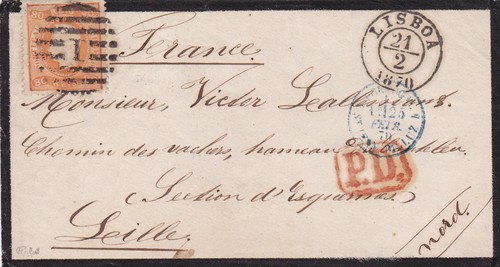 1
LISBOA
21
2
1870
France
Monsieur, Victor Lallemant
FEVR.
70
Chemin des vaches, hameau
P.D.
Section d'Esquermes
Leille.
nord.